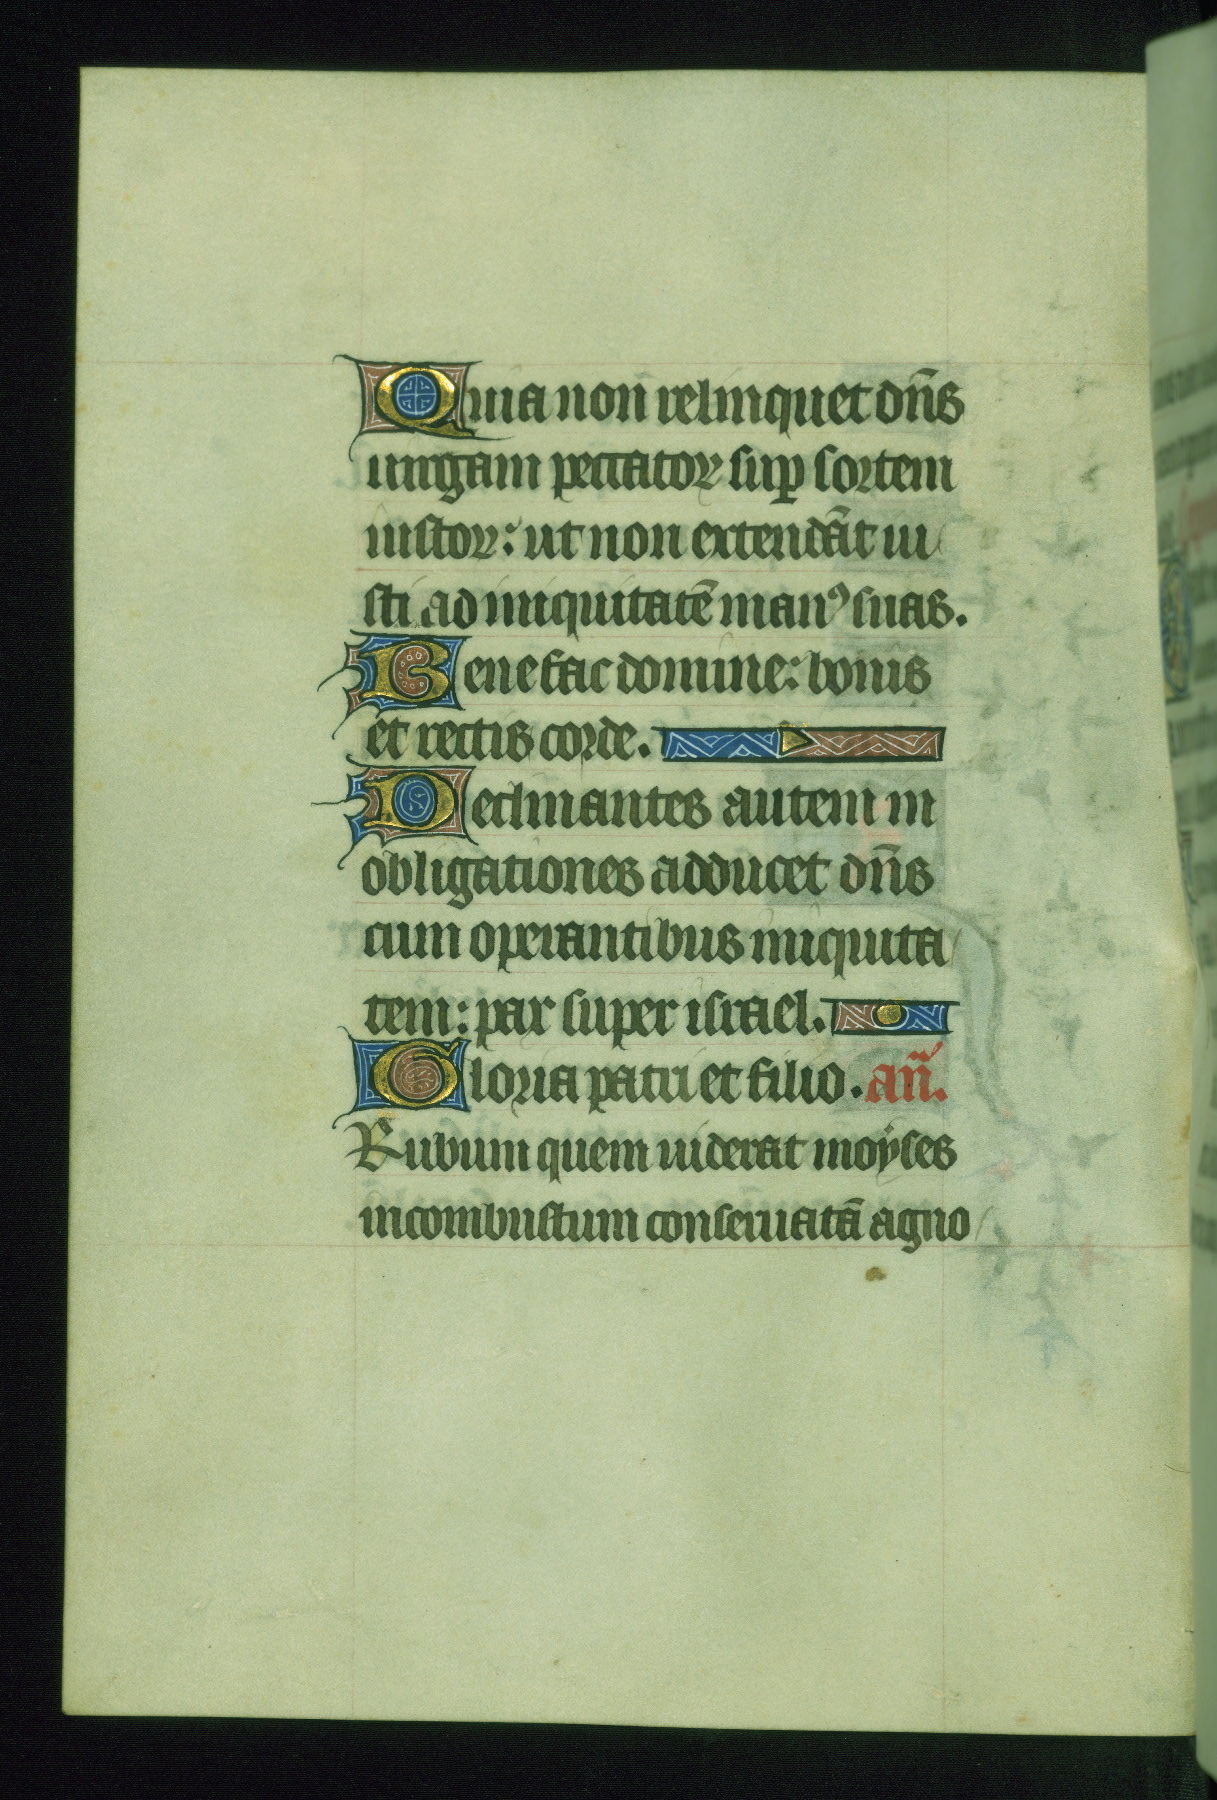 Quia non relinquet dn̄s
uirgam peccatoꝝ sup̱ sortem
iustoꝝ: ut non extendāt iu
sti ad iniquitatē manꝰ suas.
Benefac domine: bonis
et rectis corde.
Declinantes autem in
obligationes adducet dn̄s
cum operantibus iniquita
tem: pax super israel.
Gloria patri et filio. an̄.
Rubum quem uiderat moyses
incombustum conseruatā agno